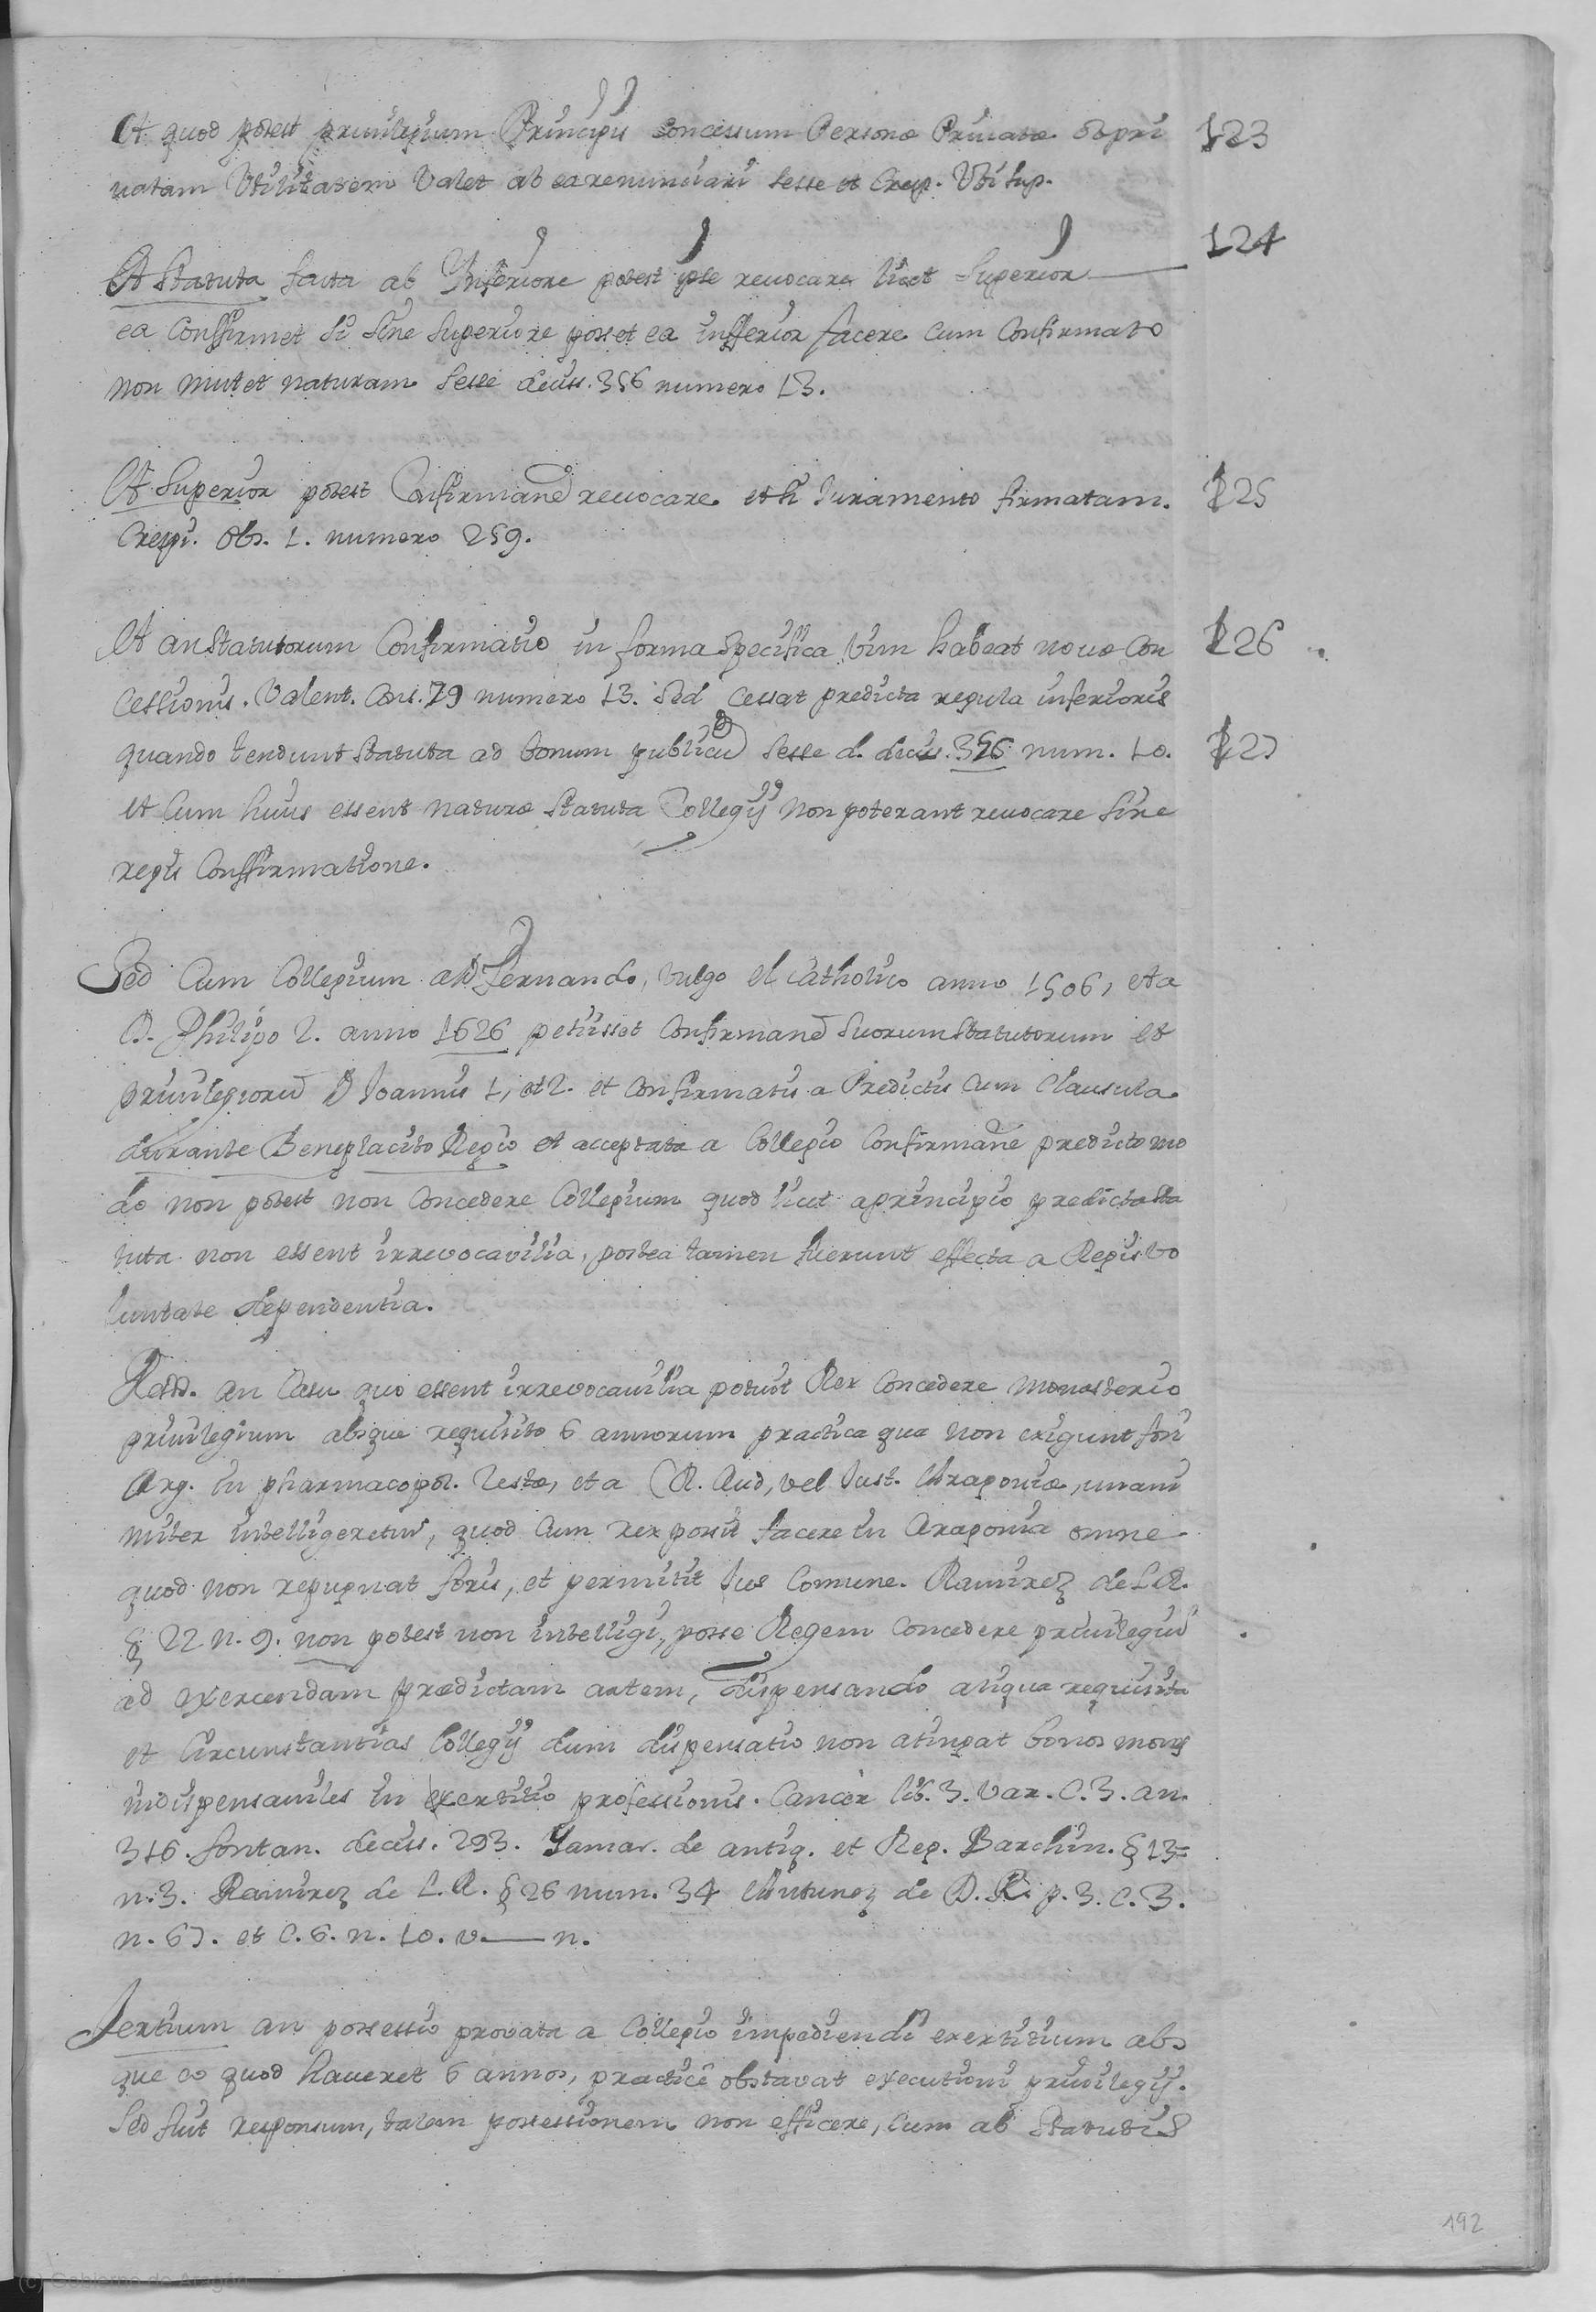 Et quod potest priuilegium Principis concessum Personæ Priuatæ ob pri 123
uatam Utilitatem Valet ab ea renunciari Sesse et Cresp. Ubi sup.
Et Statuta facta ab Inferiore potest ipse reuocare licet Superior 124
ea Conffirmet si sine Superiore posset ea infferior facere cum Confirmatio
non mutet naturam Sesse deciss. 356 numero 13.
Et Superior potest Confirmane reuocare etsi Iuramento firmatam. 125
Crespi. Obs. 1. numero 259.
Et an Statutorum Confirmatio in forma Specifica Vim habeat nouæ Con 126
cessionis. Valent. Cons. 79 numero 13. Sed cessat predicta regula inferioris
quando tendunt Statuta ad bonum publicū Sesse d. decis. 356 num. 10. 127
et Cum huius essent naturæ Statuta Collegij non poterant reuocare sine
regis Conffirmatione.
Sed Cum Collegium a D. Fernando, vulgo el catholico anno 1506, et a
D. Philipo 2. anno 1626 petiisset Confirmane suorum Statutorum et
priuilegiorū D Ioannis 1, et 2. et Confirmatis a Predictis Cum Clausula
durante Beneplacito Regio et acceptata a Collegio Confirmane predicto mo
do non potest non Concedere Collegium quod licet a principio predicta Sta
tuta non essent irrevocavilia, postea tamen fuerunt effecta a Regis Vo
luntate dependentia.
an Casu quo essent irrevocauilia potuit Rex Concedere Monasterio
priuilegium absque requisito 6 annorum practica qua non exigunt fori
Arg. in pharmacopol. Testæ, et a R. Aud, vel Iust. Aragoniæ, unani
miter intelligeretur, quod Cum rex possit facere in Aragonia omne
quod non repugnat foris, et permitit Ius Comune. Ramirez de L.R.
§ 22 n. 9. non potest non intelligi, posse Regem Concedere priuilegiū
ad exercendam prædictam artem, dispensando aliqua requisita
et Circunstantias Collegij dum dispensatio non atingat bonos mores
indispensauiles in exercitio professionis. Cancèr lib. 3. Var. C. 3. an.
316. fontan. deciss. 293. Xamar. de antiq. et Reg. Barchin. § 13
n. 3. Ramirez de L.R. § 26 num. 34 Antunez de D.R. p. 3. C. 3.
n. 67. et C. 6. n. 10. v. — n.
Tertium an possessio provata a Collegio impediendi exertitium abs
que eo quod haueret 6 annos, practicê obstavat executioni priuilegij.
Sed fuit responsum, talem possessionem non efficere, Cum ab Statutis
192
(c) Gobierno de Aragón